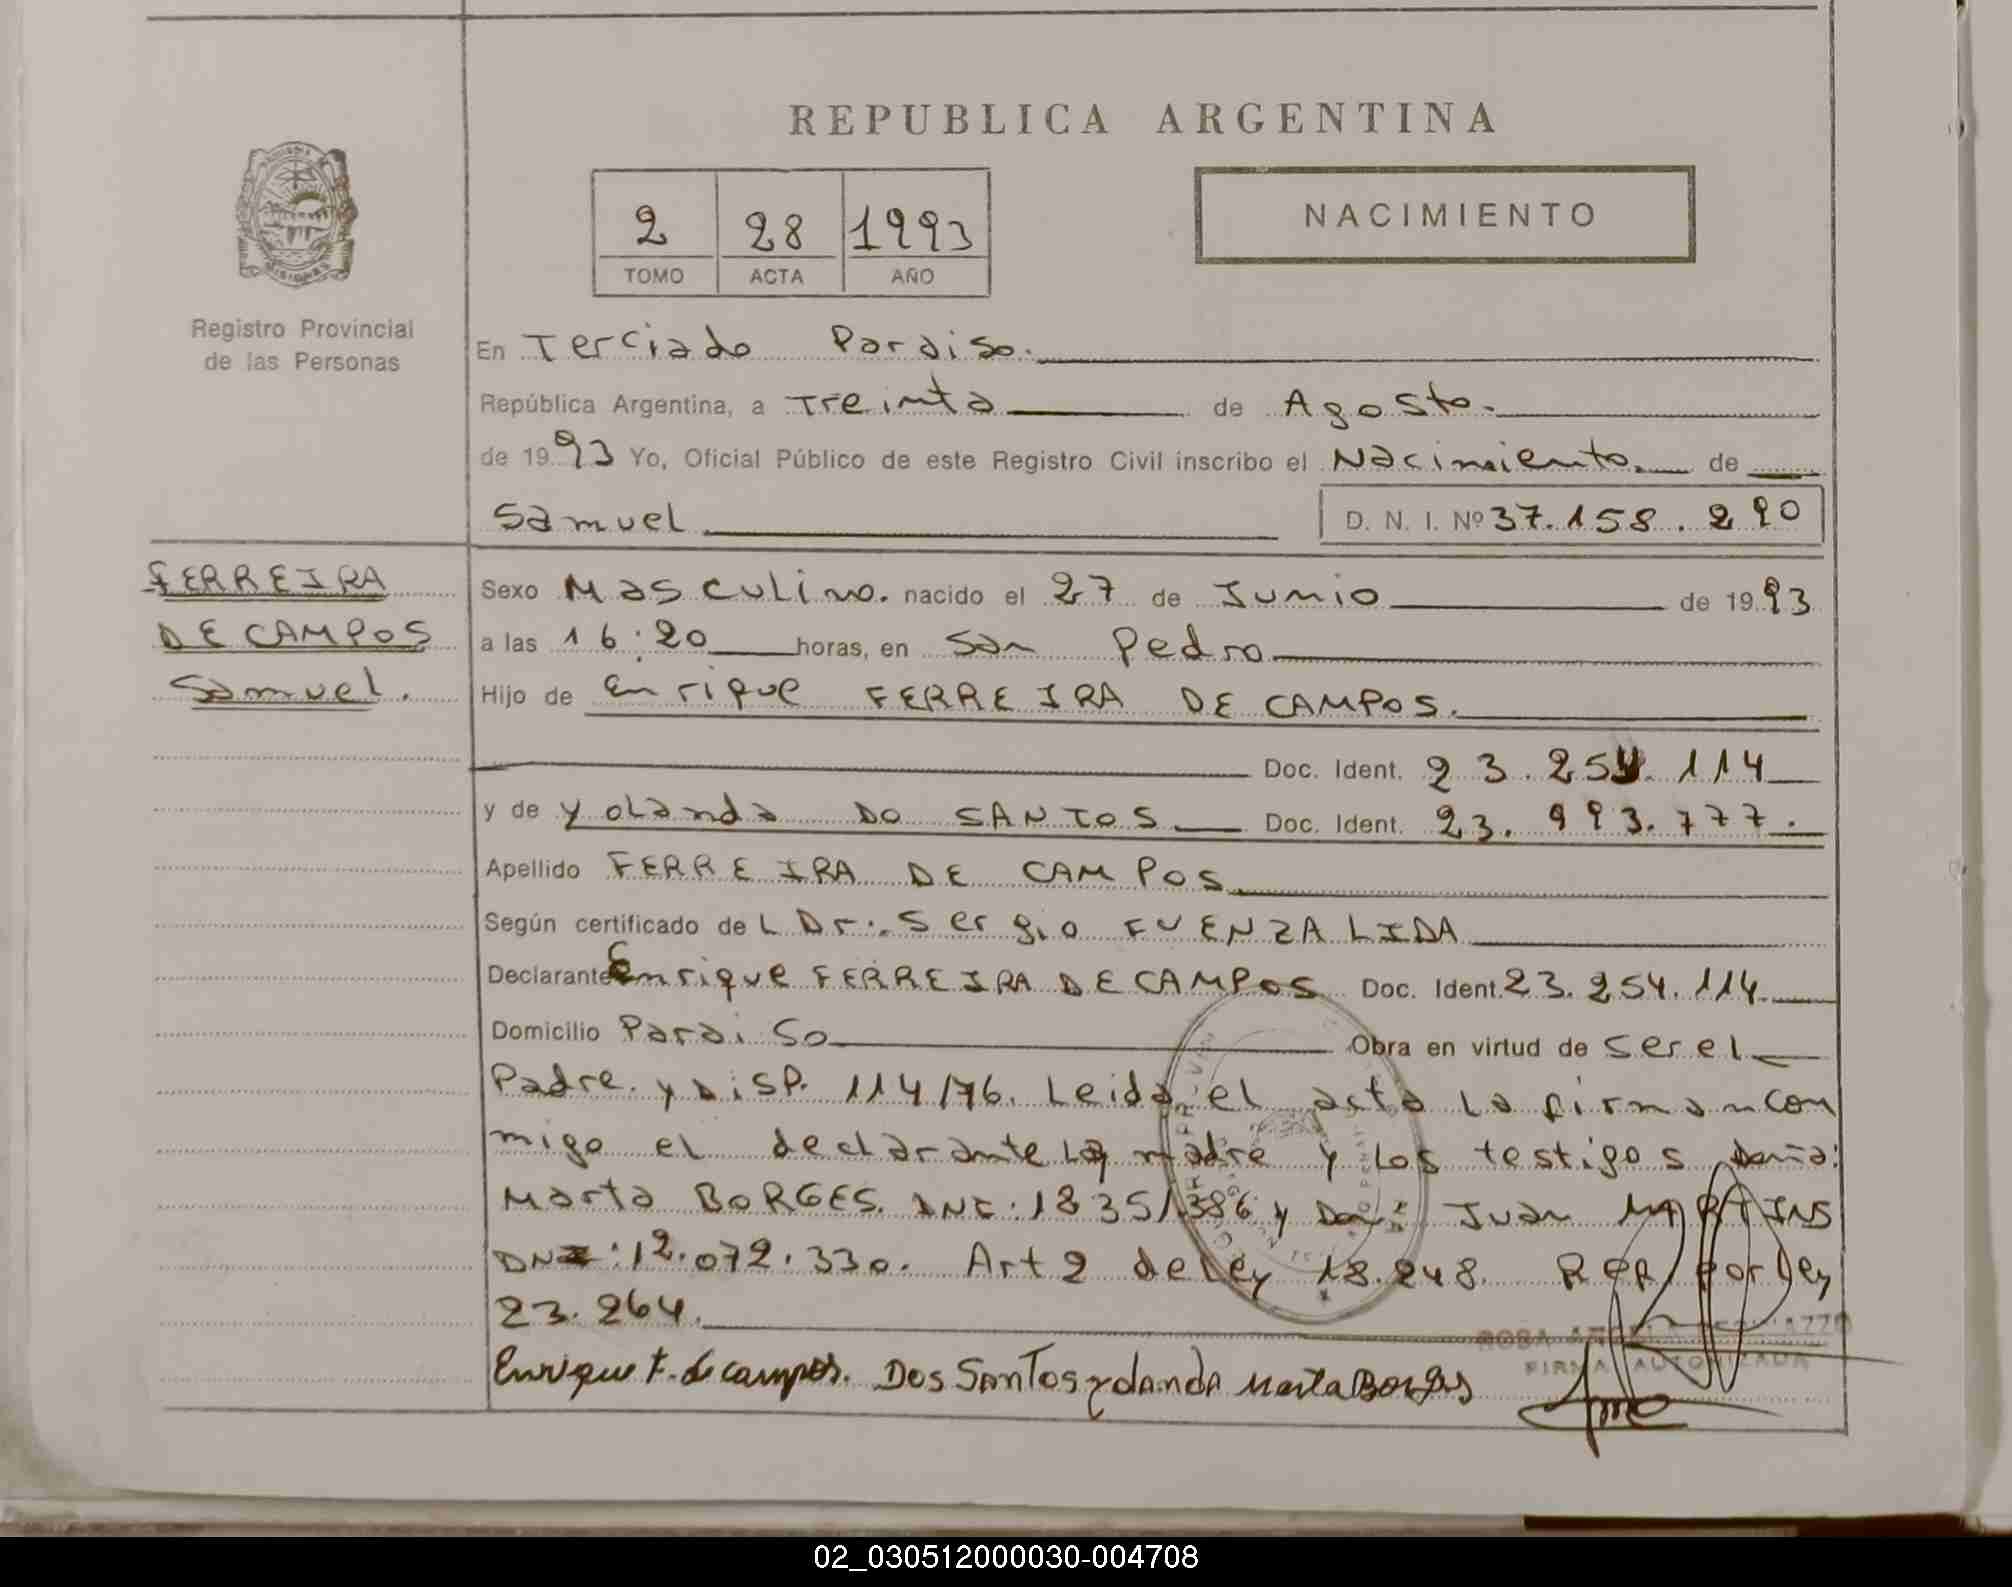 REPUBLICA ARGENTINA
2 28 1993
TOMO ACTA AÑO
NACIMIENTO
Registro Provincial
de las Personas
En Terciado Paraiso.
República Argentina, a Treinta de Agosto.
de 1993 Yo, Oficial Público de este Registro Civil inscribo el Nacimiento. de
Samuel D. N. I. Nº 37.158.290
FERREIRA
DE CAMPOS
Samuel.
Sexo Masculino. nacido el 27 de Junio de 1993
a las 16:20 horas, en San Pedro
Hijo de Enrique FERREIRA DE CAMPOS.
Doc. Ident. 23.254.114
y de Yolanda DO SANTOS Doc. Ident. 23.993.777.
Apellido FERREIRA DE CAMPOS
Según certificado de L Dr: Sergio FUENZALIDA
Declarante Enrique FERREIRA DE CAMPOS Doc. Ident. 23.254.114.
Domicilio Paraiso Obra en virtud de ser el
Padre. y Disp. 114/76. Leida el acta la firman con
migo el declarante la madre y los testigos Doña:
Marta BORGES. DNI: 18351.386 y Don: Juan MARTINS
DNI: 12.072.330. Art 2 de Ley 18.248. Rep por Ley
23.264.
Enrique F. de campos. Dos Santos yolanda Marta Borges
FIRMA AUTORIZADA
02_030512000030-004708